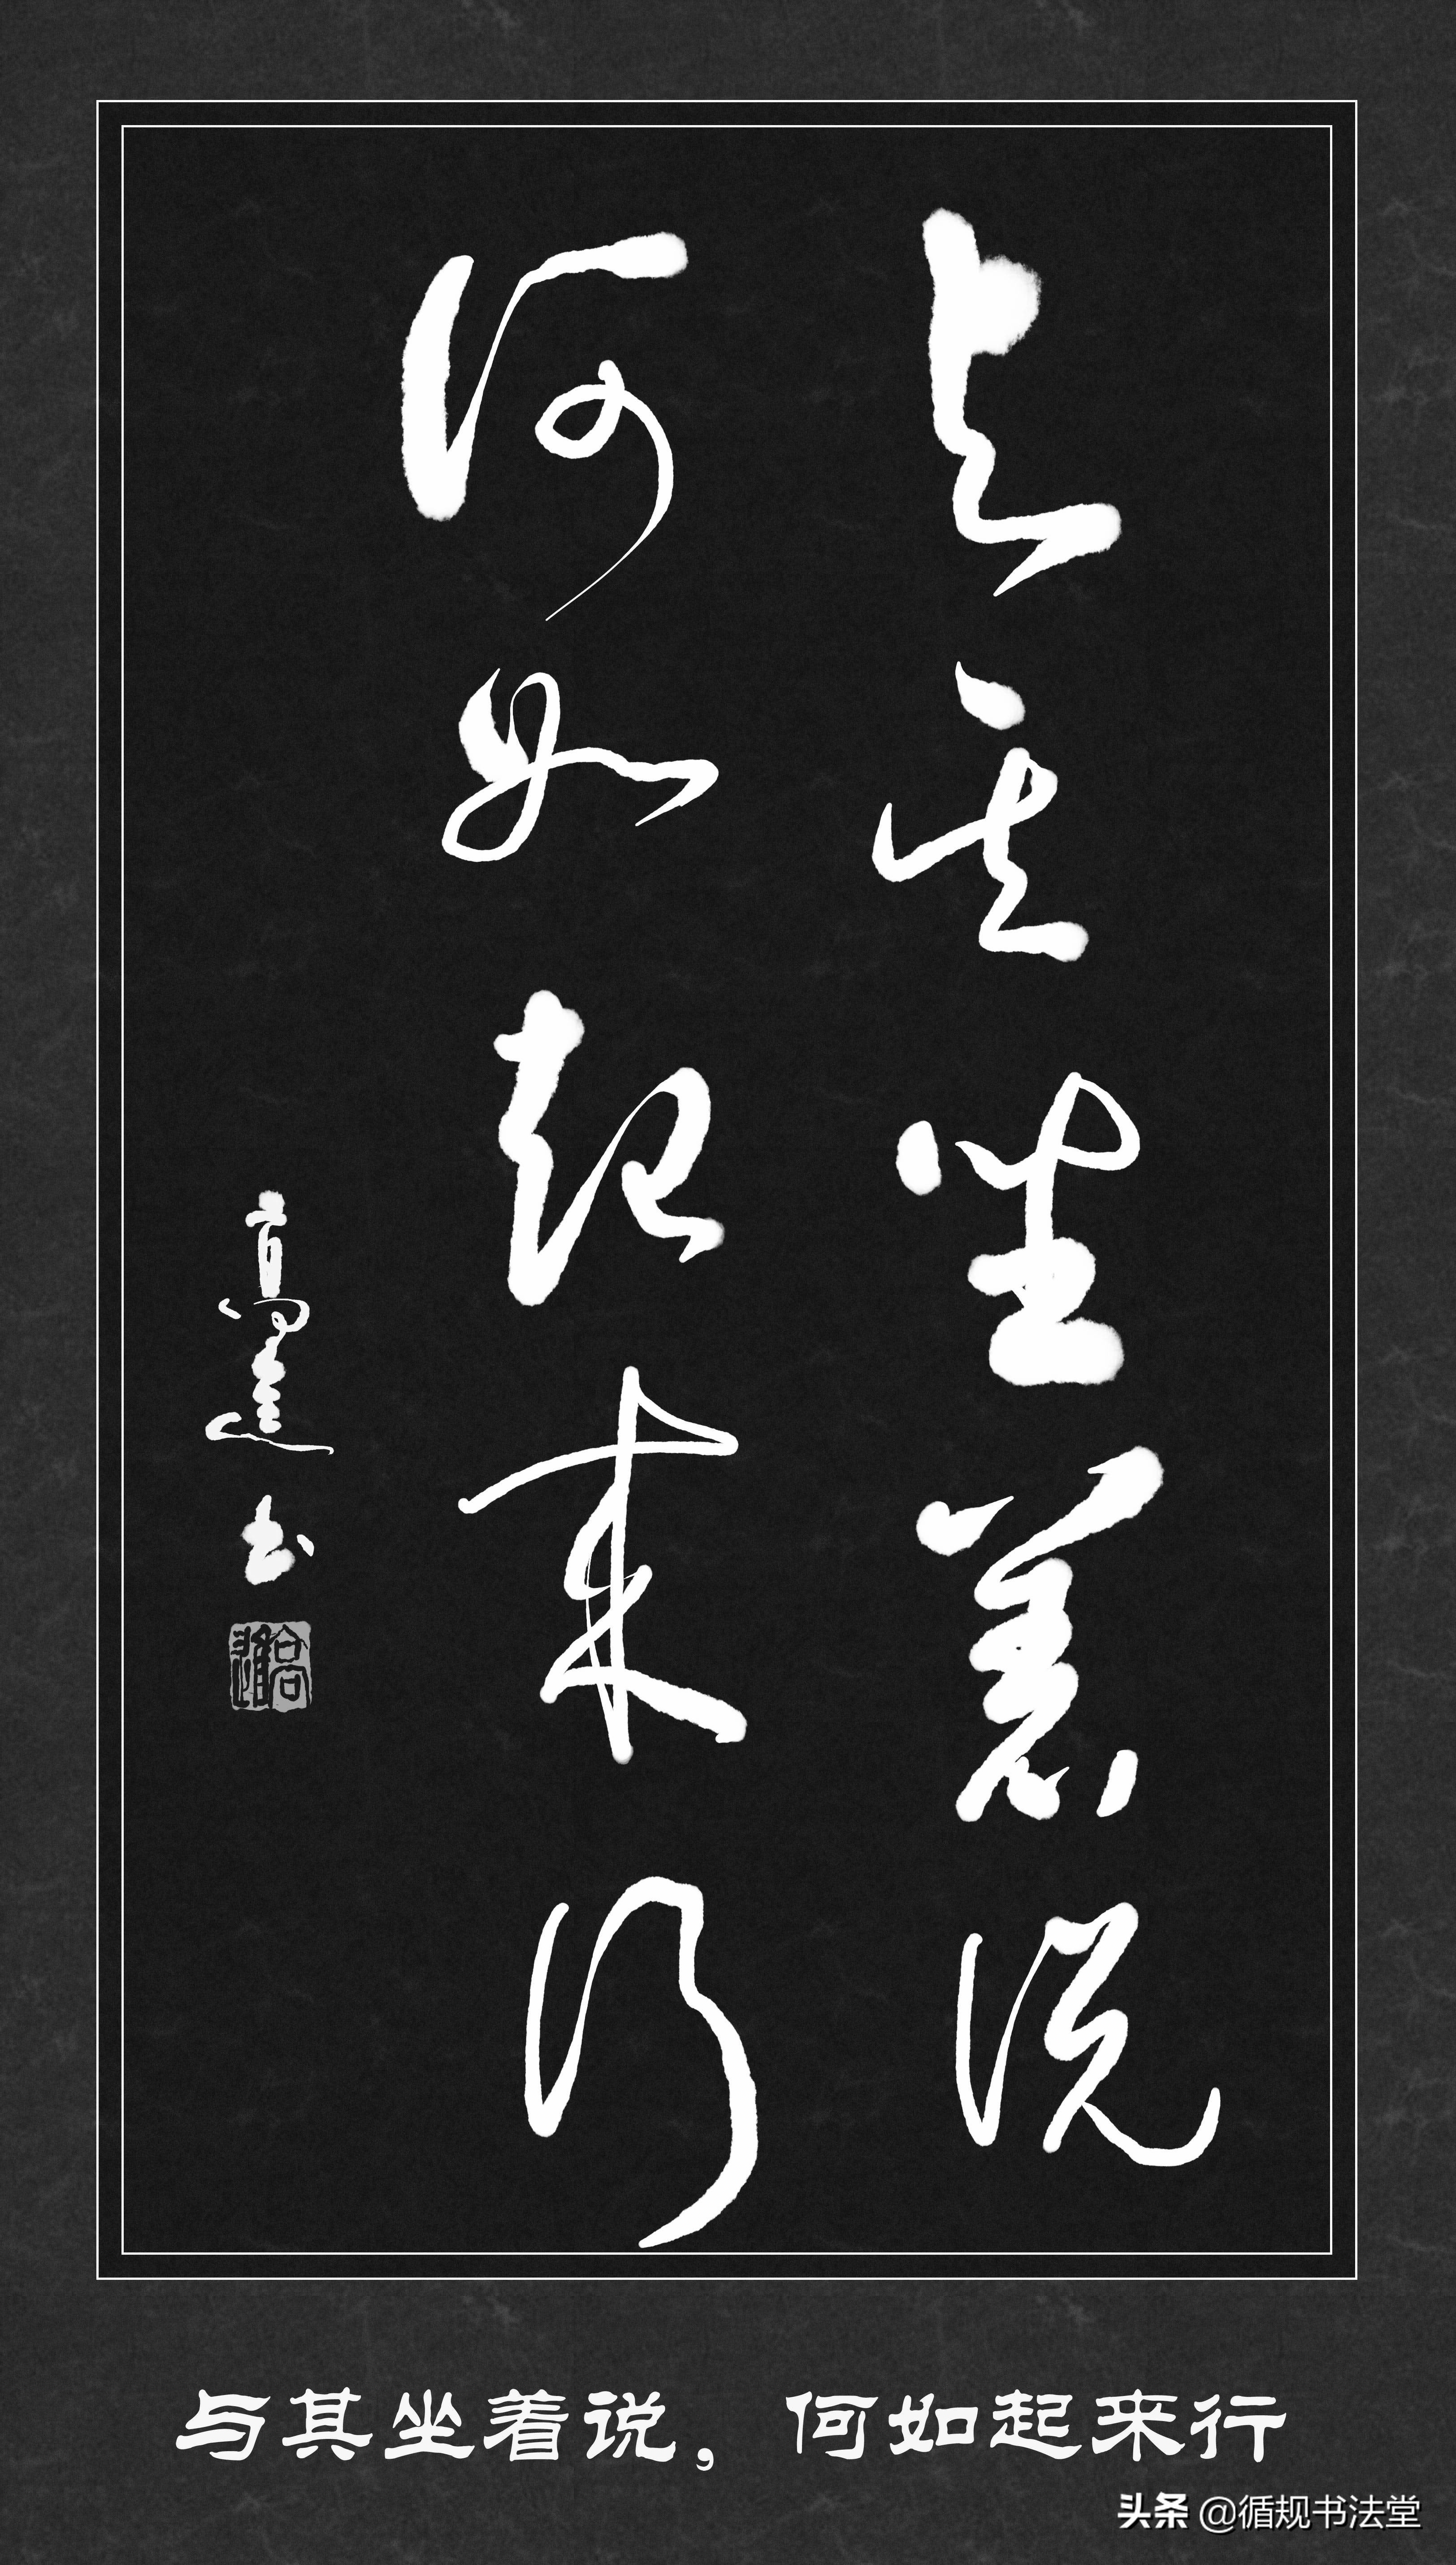 与其坐着说
何如起来行
高建书
与其坐着说，何如起来行
头条 @循规书法堂